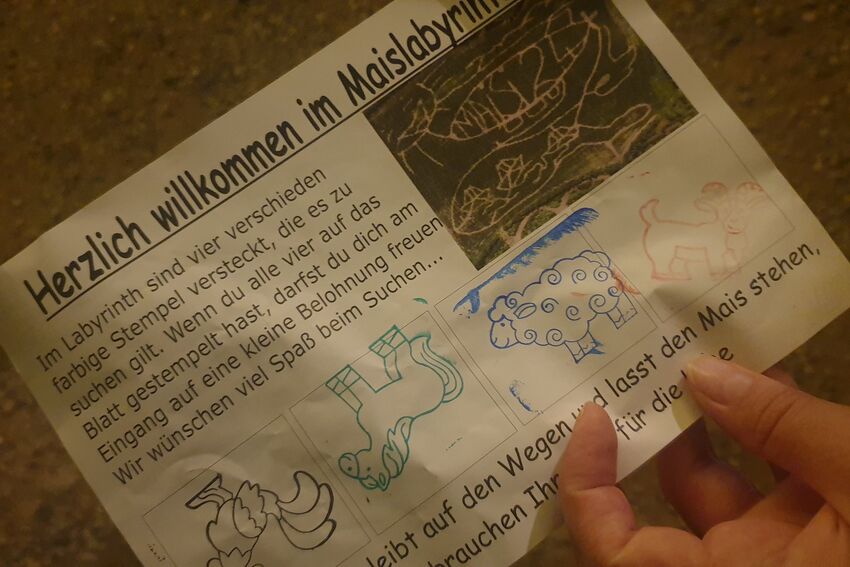 Herzlich willkommen im Maislabyrinth
Im Labyrinth sind vier verschieden
farbige Stempel versteckt, die es zu
suchen gilt. Wenn du alle vier auf das
Blatt gestempelt hast, darfst du dich am
Eingang auf eine kleine Belohnung freuen
Wir wünschen viel Spaß beim Suchen...
leibt auf den Wegen und lasst den Mais stehen,
brauchen Ihn für die